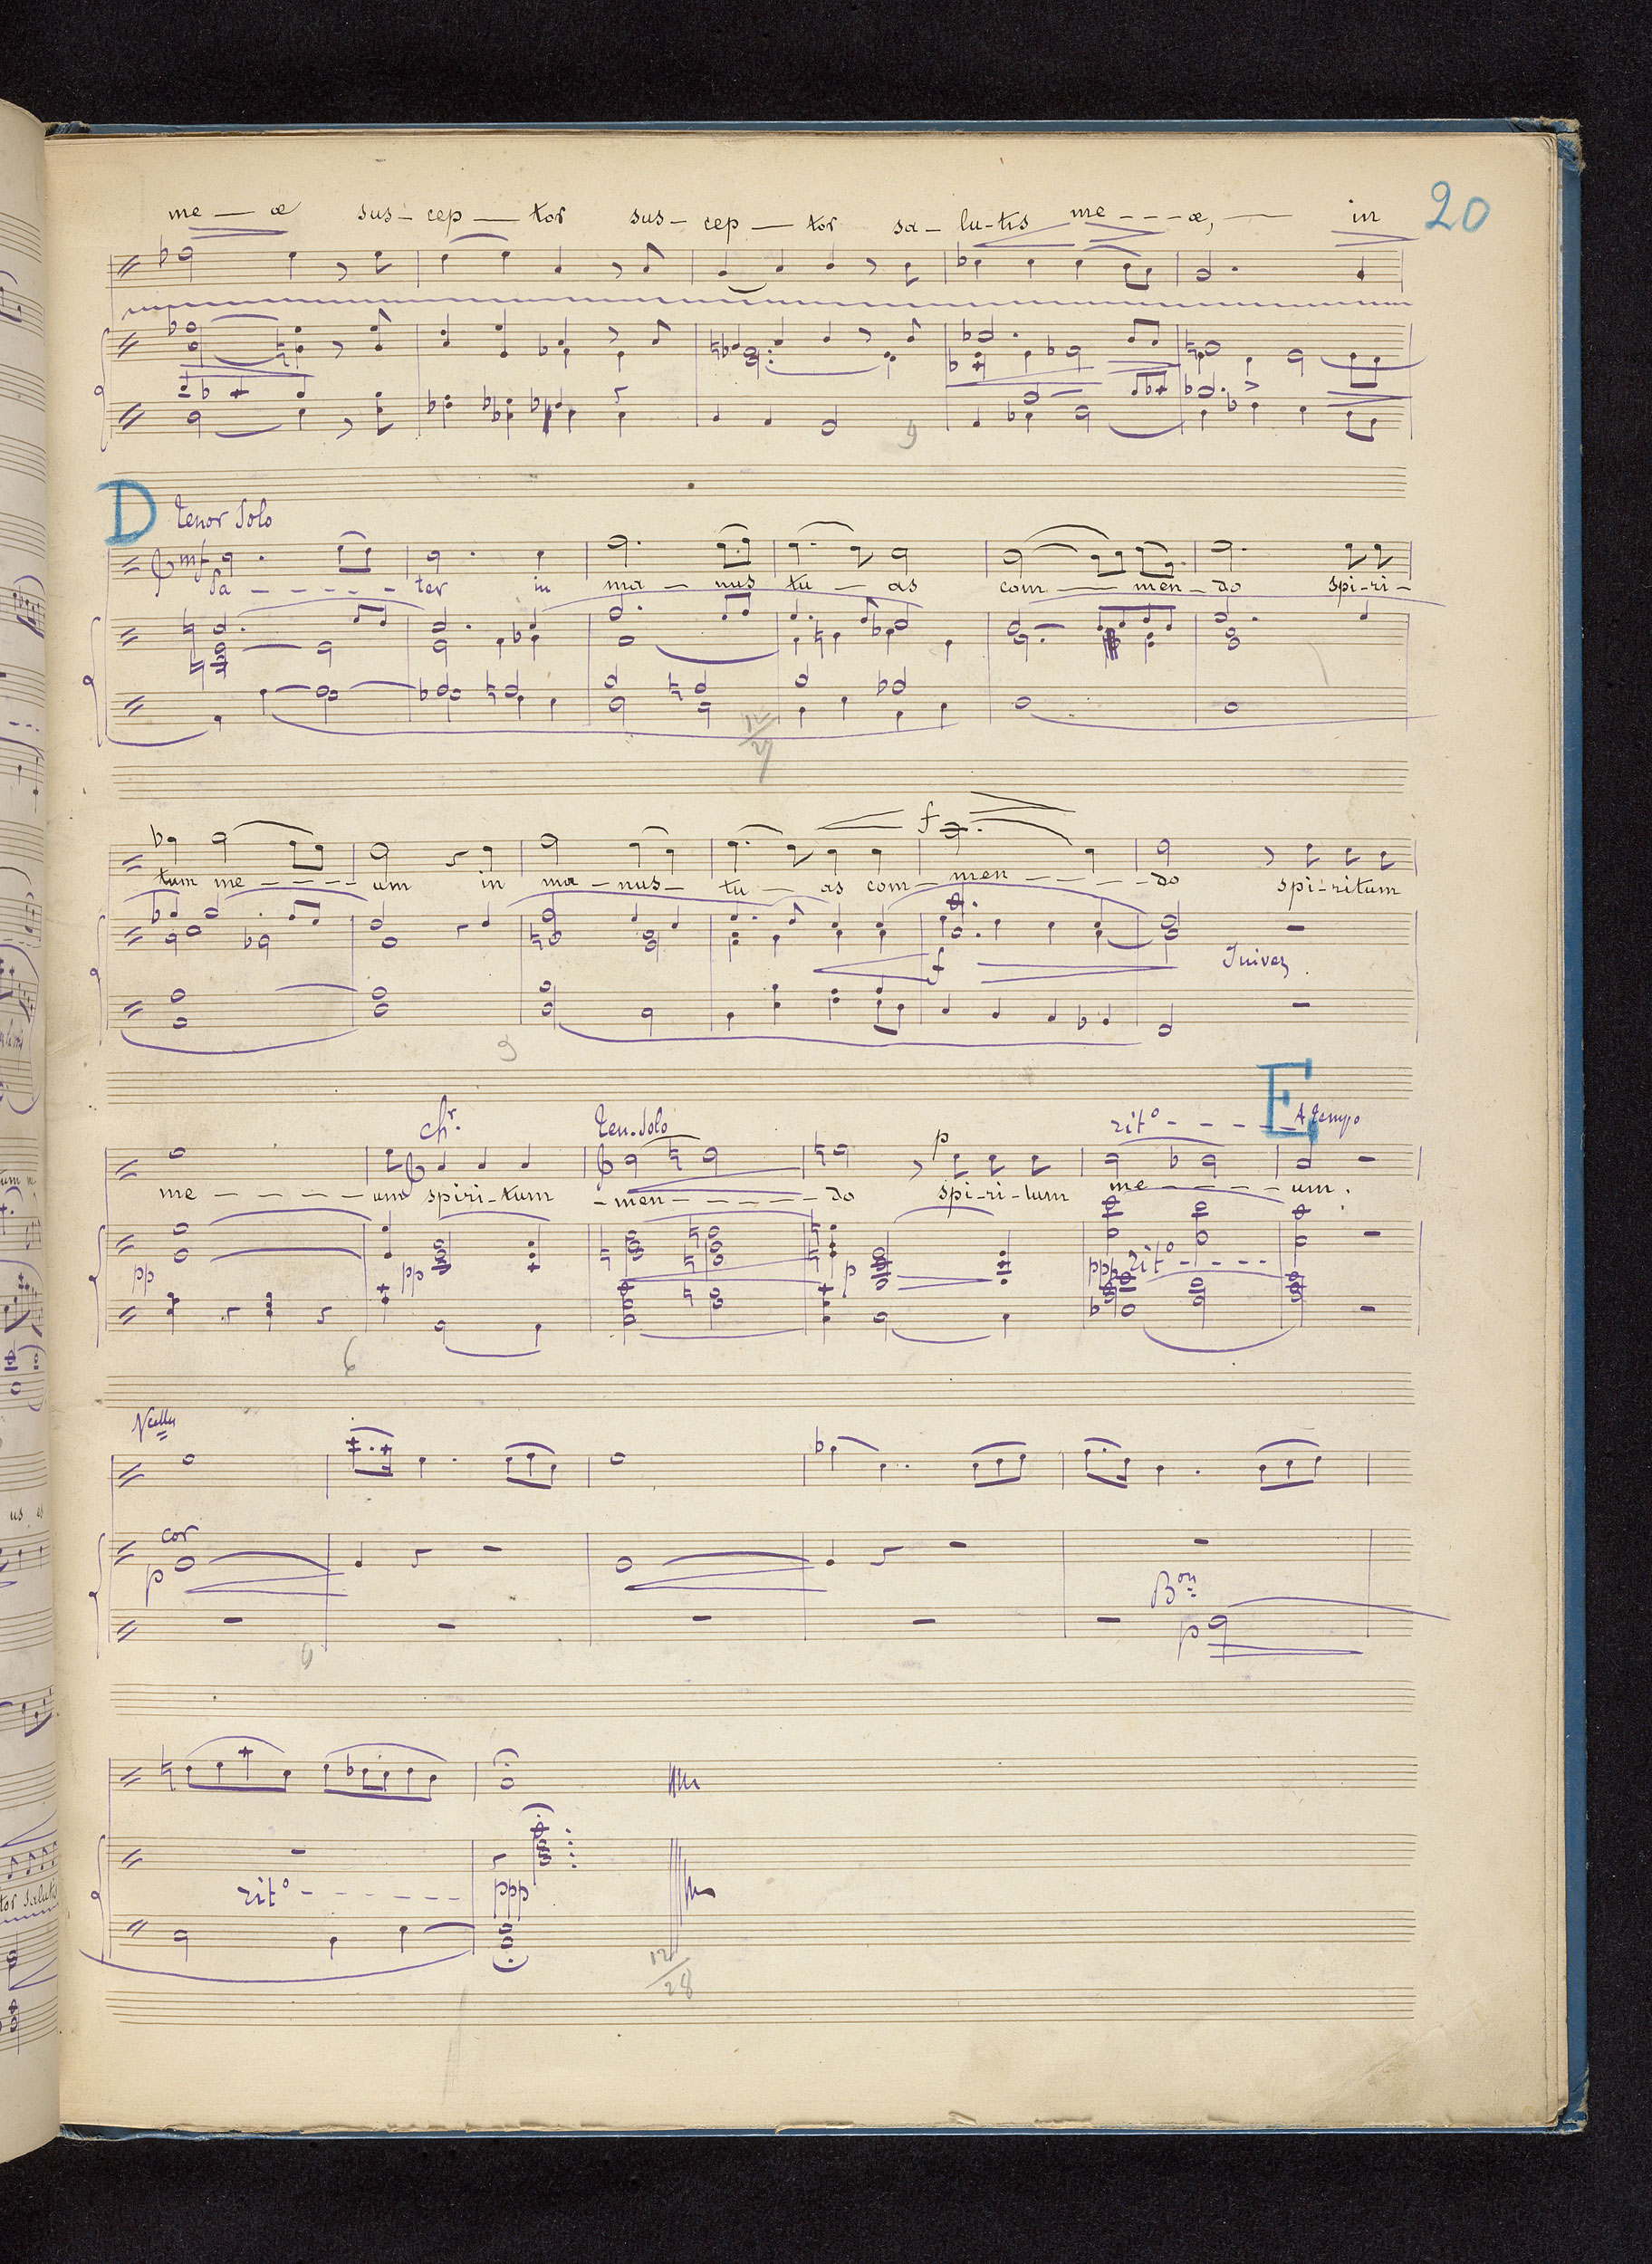 20
me — æ sus - cep — tor sus - cep — tor sa - lu - tis me - - - æ, — in
9
D Tenor Solo
mf
Pa - - - - - ter in ma — nus tu — as com — men - do spi - ri -
12/27
f
tum me - - - - um in ma - nus - tu — as com - men - - - - - do spi - ritum
f
Suivez.
9
chr. Ten. Solo rito - - - - E A Tempo
p
me - - - - - um spiri - tum - men - - - - - do spi - ri - tum me - - - - - um.
pp pp p ppp rito - - - - -
6
Vcelle
cor
p
Bon
p
9
rito - - - - - - ppp
12/28